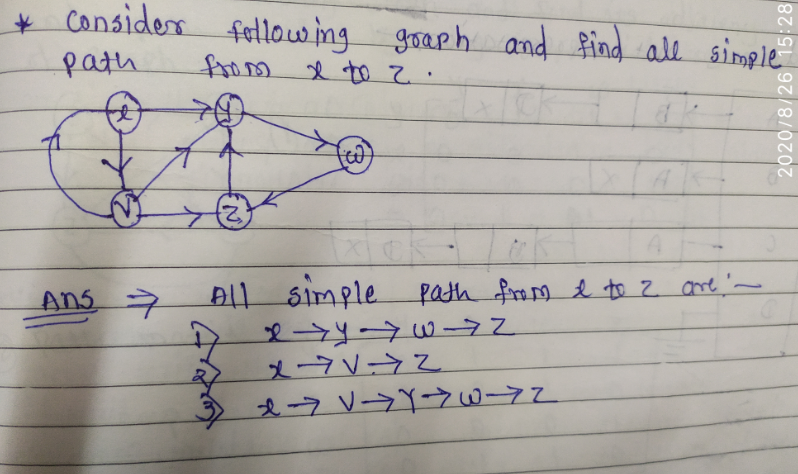 * Consider following graph and find all simple
path from x to z.
x y
w
V z
Ans ⇒ All simple path from x to z are:-
1) x → y → w → z
2) x → V → z
3) x → V → Y → w → z
2020/8/26 15:28